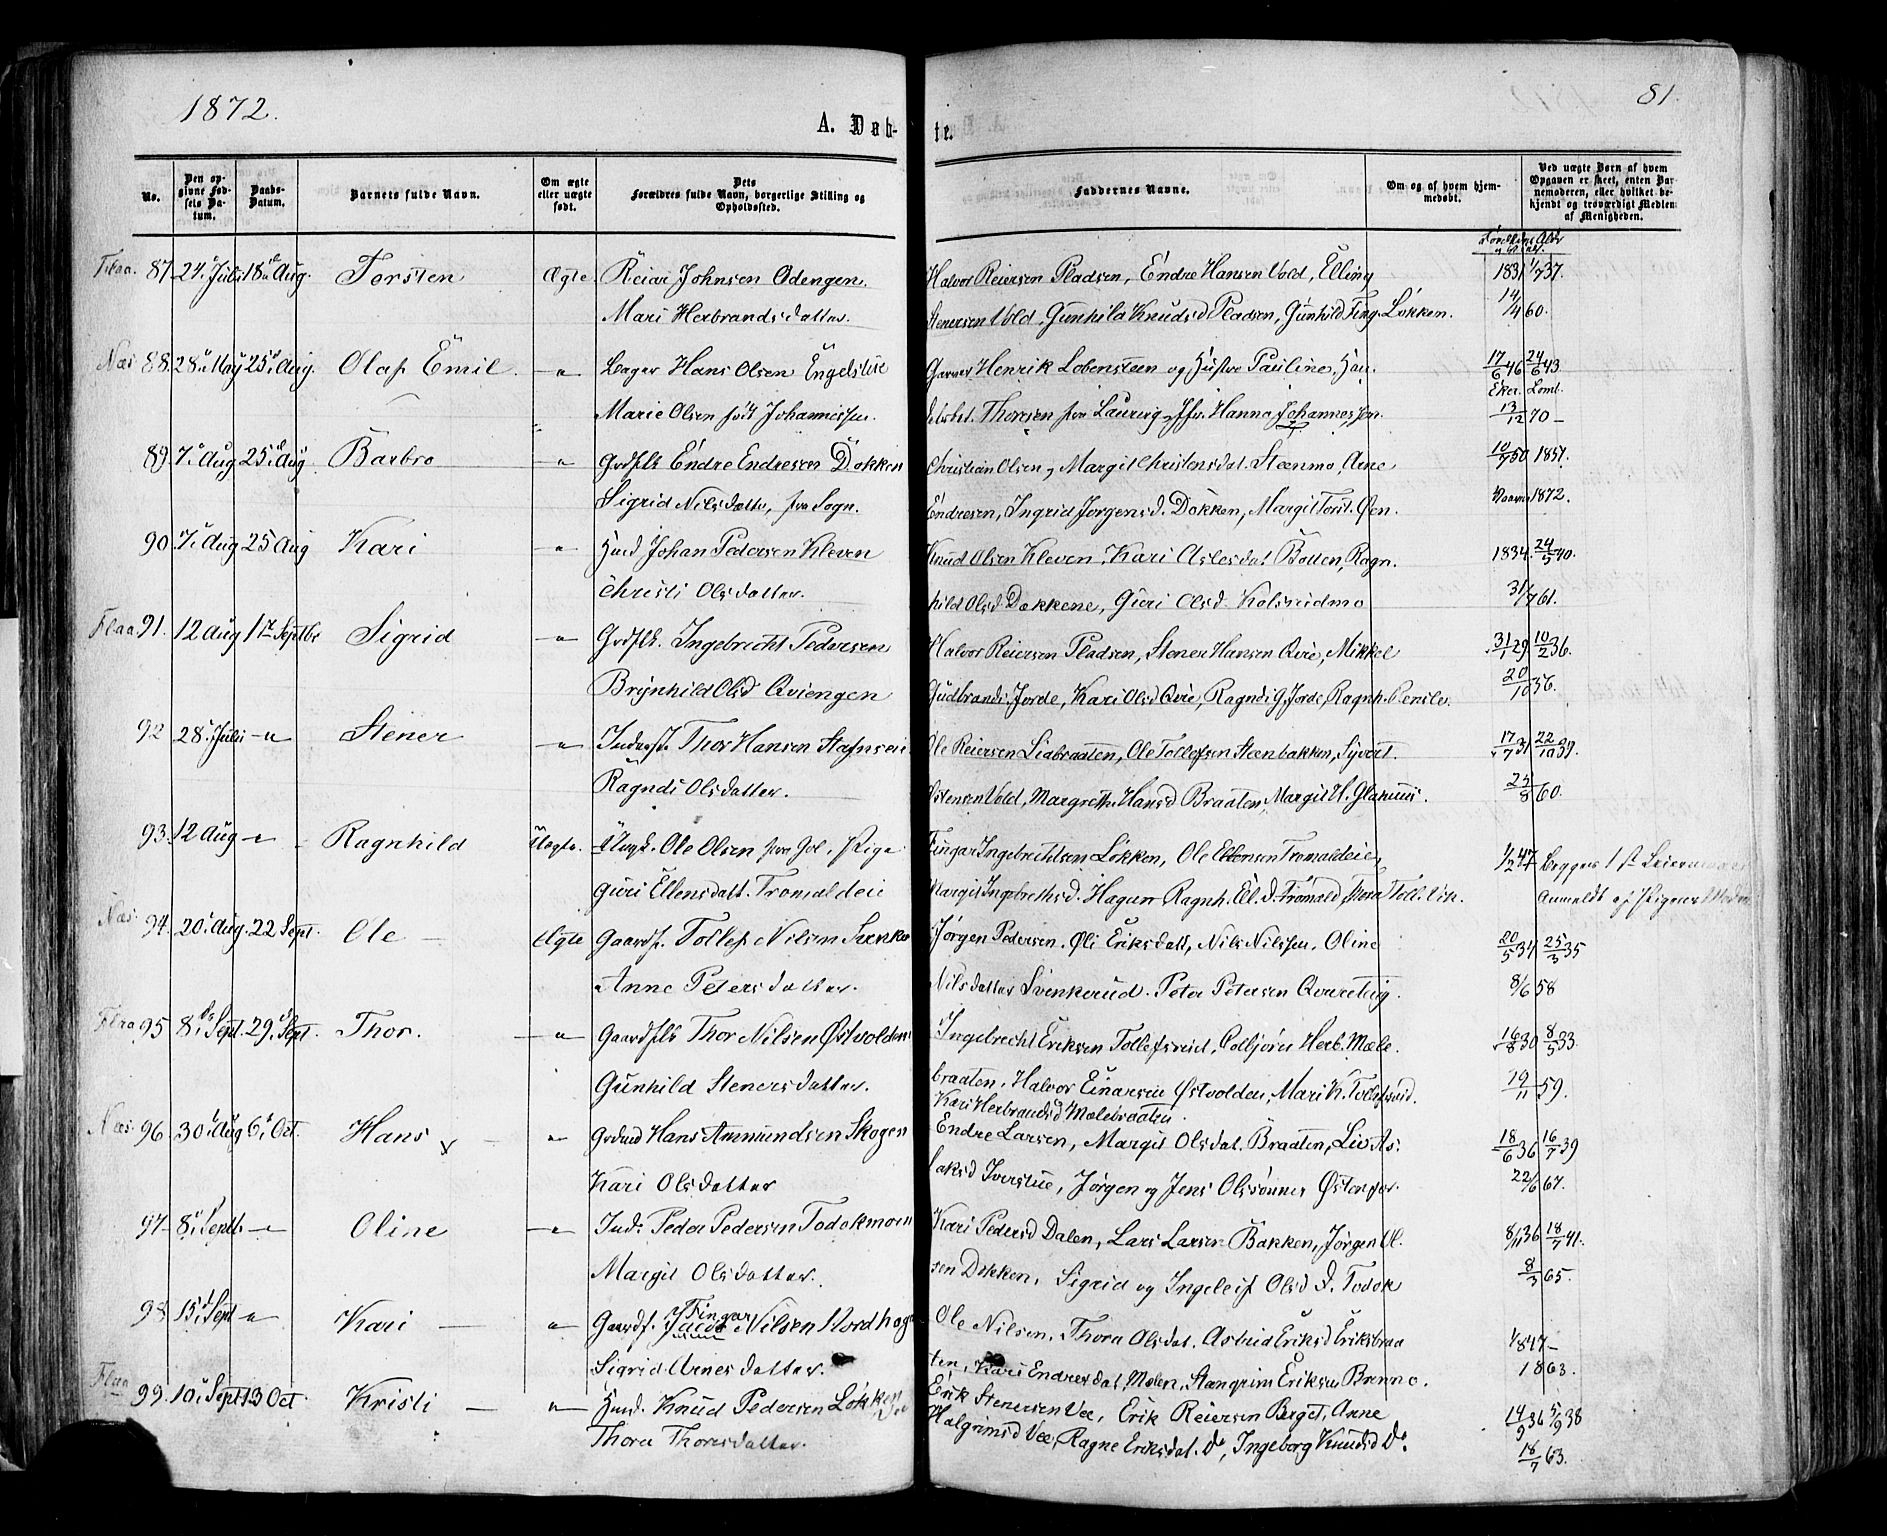 1872.
81.
A. Døb-
te.
No.
Den opgivne Fødsels Datum.
Daabs-Datum.
Barnets fulde Navn.
Om ægte eller uægte født.
Dets Forældres fulde Navn, borgerlige Stilling og Opholdssted.
Faddernes Navne.
Om og af hvem hjemmedøbt.
Ved uægte Børn af hvem Opgaven er skeet, enten Barnemoderen, eller hvilket bekjendt og troværdigt Medlem af Menigheden.
Flaa. 87. 24. Juli 18 Aug. Torsten Ægte. Reiar Johnsen Odengen. Halvor Reiersen Pladsen, Endre Hansen Vold, Elling 1831 1/7 37.
Mari Herbrandsdatter. Stenersen Vold, Gunhild Knudsd Pladsen, Gunhild Fing. Løkken. 14/4 60.
Næs. 88. 28 May 25 Aug. Olaf Emil. -"- Hans Olsen Engelstue Garver Henrik Lobensteen og Hustru Pauline, Han- 17/6 46 24/6 43
Marie Olsen født Johannessen. Thoresen fra Laurvig, Jfr. Hanna Johannessen. 13/12 70 -
Eker. Lomb.
89. 7. Aug 25 Aug Barbro -"- Grdslb Endre Endresen Dokken Christian Olsen, Margit Christensdat. Steenmo, Arne 10/7 50 1851.
Sigrid Nilsdatter, fra Sogn. Endresen, Ingrid Jørgensd. Dokken, Margit Torst. Øen. 1872.
90. 7. Aug 25 Aug Kari -"- Husd. Johan Pedersen Kleven Knud Olsen Kleven, Kari Aslesdat Botten, Ragn- 1834. 24/5 40.
Christi Olsdatter. hild Olsd Dokkene, Guri Olsd. Kolsrudmo 31/7 61.
Flaa 91. 12 Aug 1ste Septbr Sigrid -"- Grdslb. Ingebrecht Pedersen Halvor Reiersen Pladsen, Stener Hansen Qvie, Mikkel 31/1 29 10/2 36.
Brynhild Olsd Qviengen Gudbrands. Jorde, Kari Olsd Qvie, Ragndi G. Jorde, Ragnh. 20/10 56.
92 28. Juli -"- Stener -"- Inderst. Thor Hansen Ole Reiersen Liabraaten, Ole Tollefsen Steenbakken, Syvert 17/7 31 22/10 39.
Ragndi Olsdatter. Østensen Vold, Margrethe Hansd Braaten, Margit H. 25/8 60.
93. 12 Aug -"- Ragnhild Uægte. Ungk. Ole Olsen fra Gol. Pige Fingar Ingebrechtsen Løkken, Ole Ellensen Tromaldeie, 1/2 47 Begges 1ste Leiermaal
Guri Ellensdatt. Tromaldeie Margit Ingebrethsd. Hagan Ragnh. El. D. Tromald, Anmeldt af Pigens Moder
Næs. 94. 20. Aug. 22 Sept. Ole - Ægte Gaardf. Tollef Nilsen Jørgen Pedersen. Øli Eriksdatt, Nils Nilssen, Oline 20/5 31 25/3 35
Anne Petersdatter. Nilsdatter Svenkerud. Peter Petersen 8/6 58
Flaa 95 8. Sept. 29. Sept. Thor. -"- Gaardslb Thor Nilsen Østvolden Ingebrecht Eriksen Tollefsrud, Colbjørn Herb. Mæle- 16/8 30 8/5 33.
Gunhild Stenersdatter. braaten, Halvor Einarsen Østvolden, Mari K. Tollefsrud. 19/11 59.
Kari Herbrandsd Mælebraaten.
Næs. 96 30 Aug 6 Oct. Hans -"- Hans Ammundsen Skogen Endre Larsen, Margit Olsdat. Braaten, Liv As- 18/6 36 16/7 39
Kari Olsdatter laksd Iverstue, Jørgen og Jens Olssønner 22/6 67.
97 8. Septb -"- Oline -"- Ind. Peder Pedersen Todokmoen Kari Pedersd Dalen, Lars Larsen Bakken, Jørgen Ol- 8/11 36 18/7 41.
Margit Olsdatter. sen Dokken, Sigrid og Ingeleif Olsd D. Todok 8/3 65.
98. 15. Sept -"- Kari - -"- Gaardf. Jacob Fingar Nilsen Nordhagen Ole Nilsen, Thora Olsdat. Astrid Eriksd Eriksbraa- 1847 -
Sigrid Arnesdatter. ten, Kari Endresdat Mælen, Stengrim Eriksen Brenno. 1863.
Flaa 99. 10. Sept 13 Oct. Kristi - -"- Husd. Knud Pedersen Løkken Erik Stenersen Vee, Erik Reiersen Berget, Anne 14/9 36 5/9 38
Thora Thorsdatter. Halgrimsd Vee, Ragne Eriksdat. Do, Ingeborg Knudsd Do. 18/7 63.